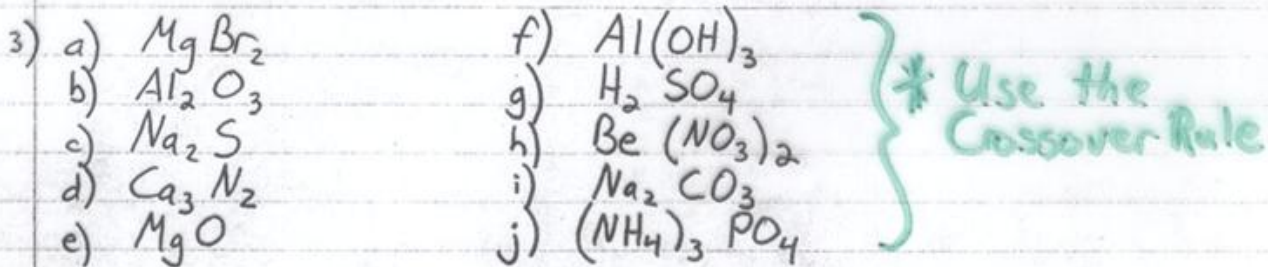 3) a) MgBr₂
b) Al₂O₃
c) Na₂S
d) Ca₃N₂
e) MgO
f) Al(OH)₃
g) H₂SO₄
h) Be(NO₃)₂
i) Na₂CO₃
j) (NH₄)₃PO₄
* Use the
Crossover Rule